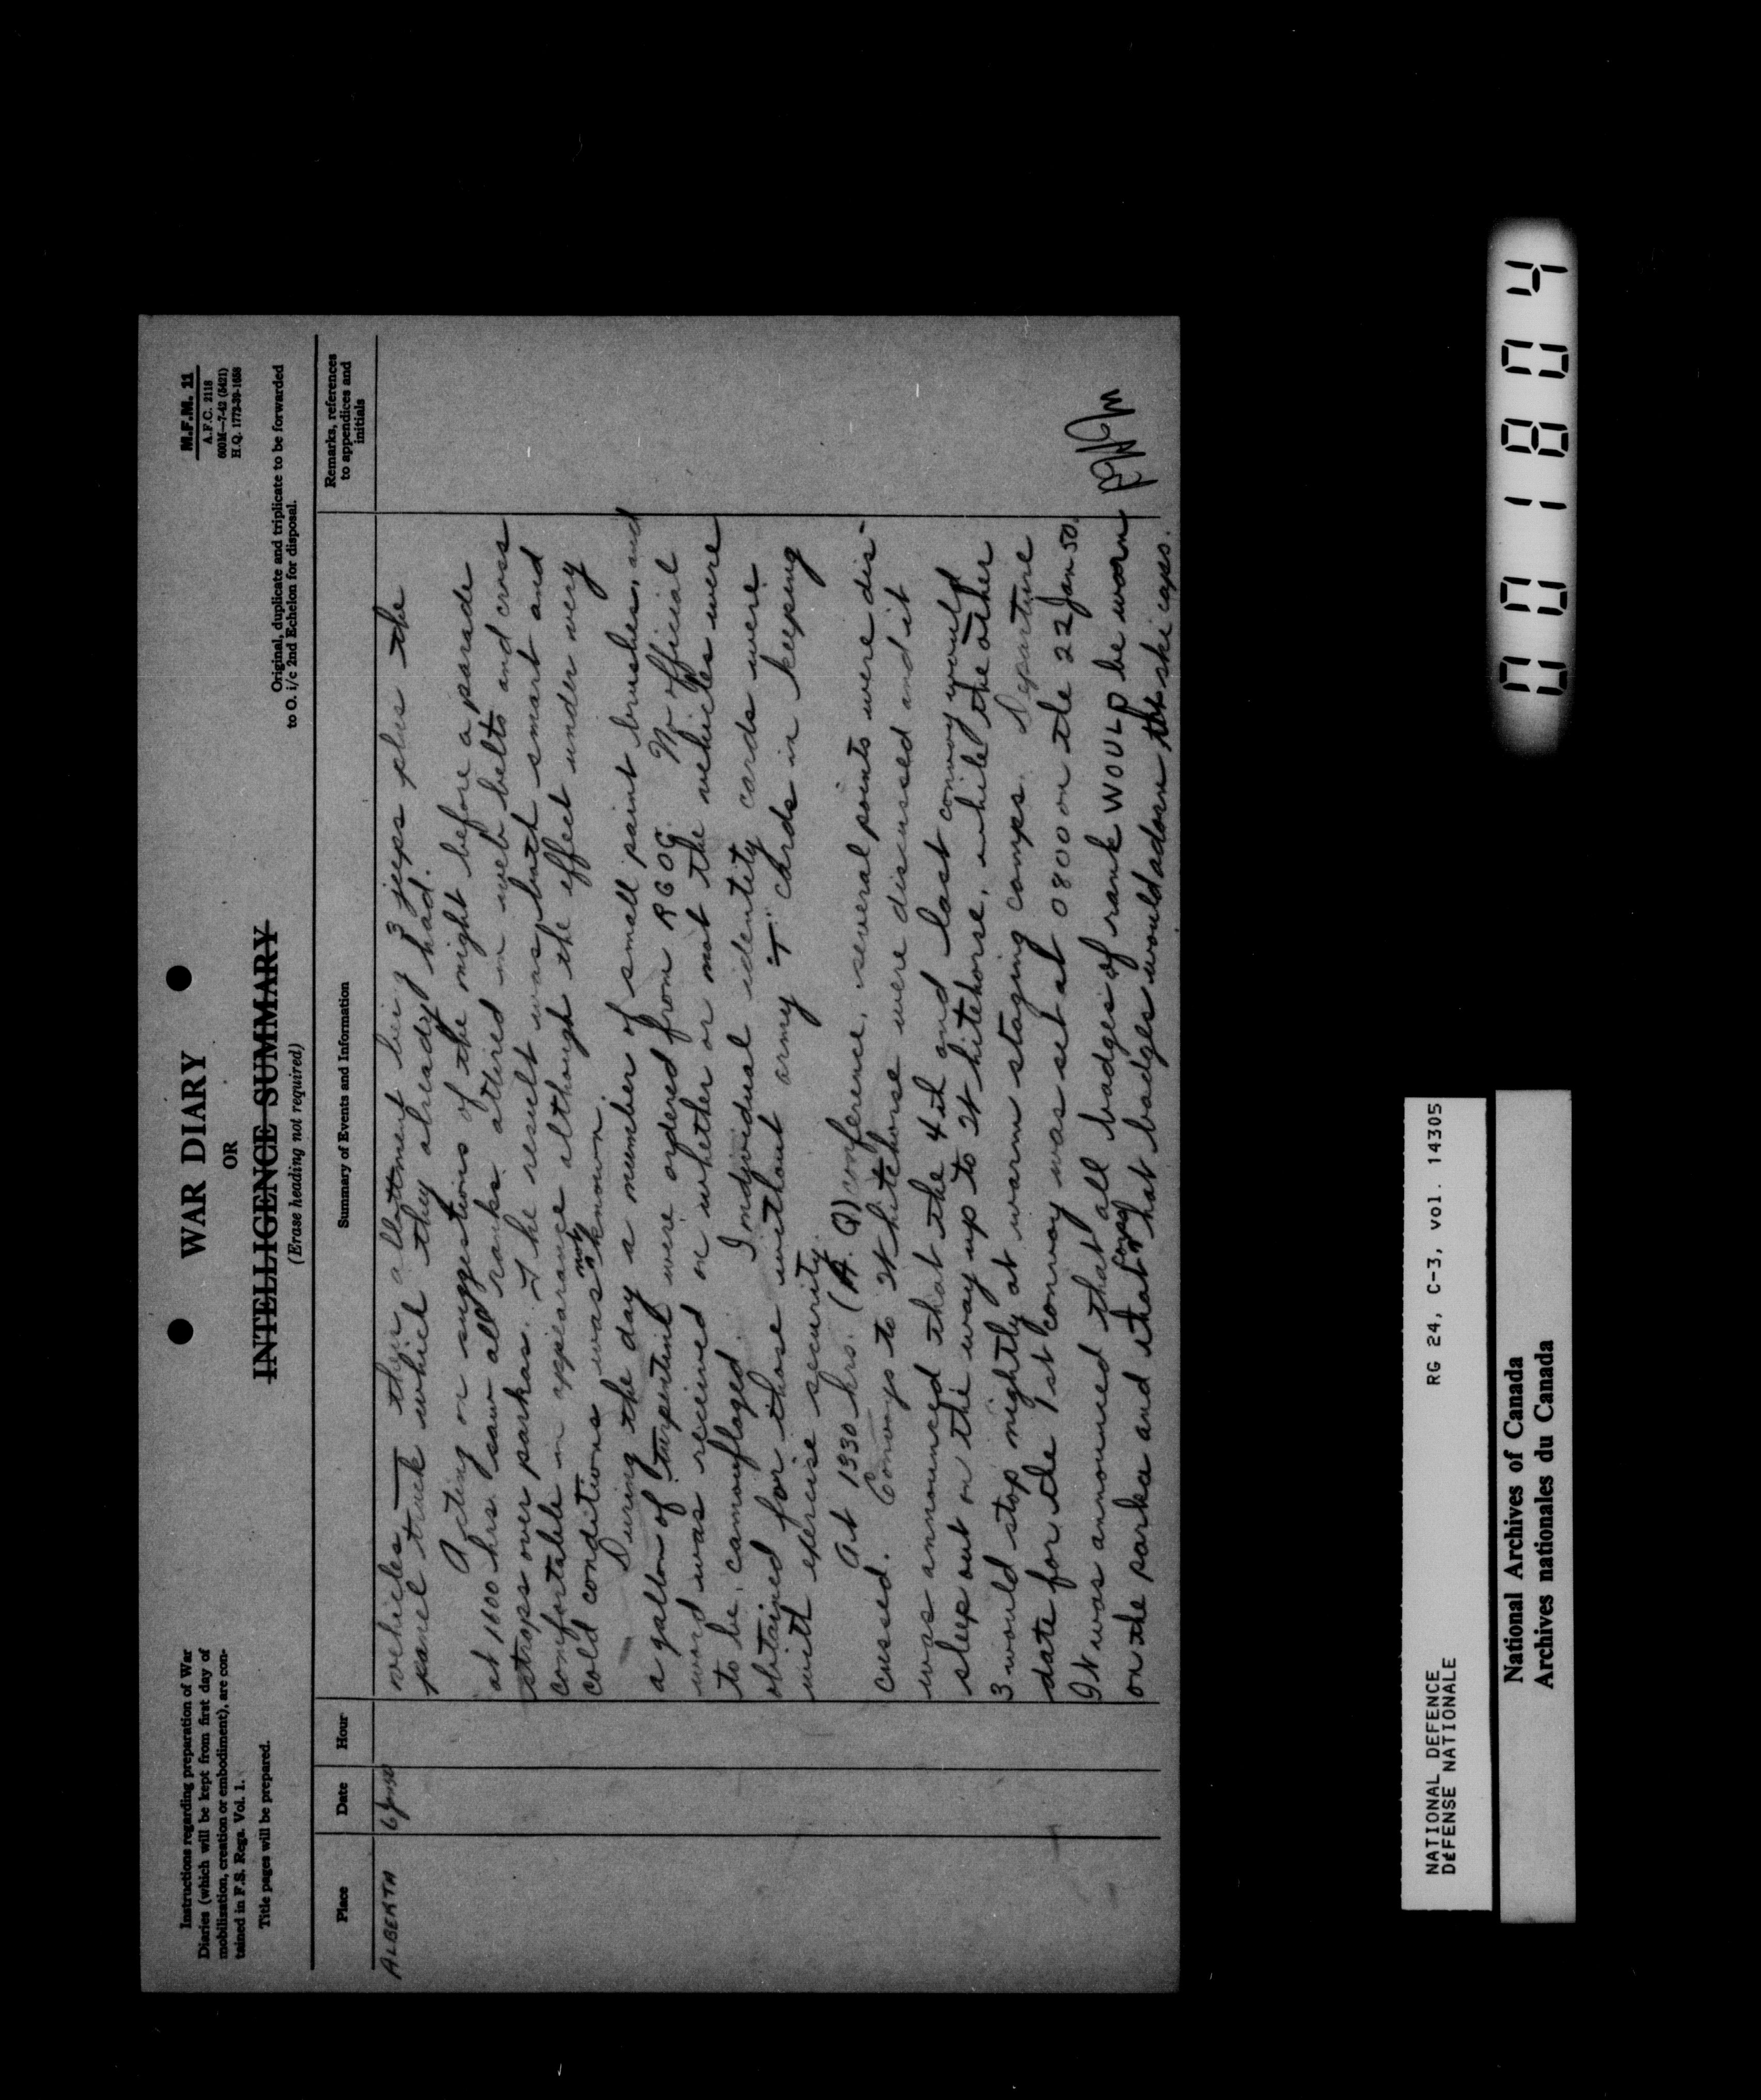 Instructions regarding preparation of War
Diaries (which will be kept from first day of
mobilization, creation or embodiment), are con-
tained in F.S. Regs. Vol. 1.
Title pages will be prepared.
WAR DIARY
OR
INTELLIGENCE SUMMARY
(Erase heading not required)
M.F.M. 11
A.F.C. 2118
600M—7-42 (5421)
H.Q. 1772-39-1656
Original, duplicate and triplicate to be forwarded
to O. i/c 2nd Echelon for disposal.
Place Date Hour Summary of Events and Information Remarks, references
to appendices and
initials
ALBERTA 6 Jan 50 vehicles — their allottment being 3 jeeps plus the
panel truck which they already had.
Acting on suggestions of the night before a parade
at 1600 hrs. saw all ranks attired in web belts and cross
straps over parkas. The result was both smart and
comfortable in appearance although the effect under very
cold conditions was not known.
During the day a number of small paint brushes, and
a gallon of turpentine were ordered from RCOC. No official
word was received on whether or not the vehicles were
to be camouflaged. Individual identity cards were
obtained for those without army "I" cards in keeping
with exercise security.
At 1330 hrs. (A. Q) conference, several points were dis-
cussed. Convoys to Whitehorse were discussed and it
was announced that the 4th and last convoy would
sleep out on the way up to Whitehorse, while the other
3 would stop nightly at warm staging camps. Departure
date for the 1st convoy was set at 0800 on the 22 Jan 50.
It was announced that all badges of rank WOULD be worn
on the parka and that corps hat badges would adorn the ski caps.
0001804
NATIONAL DEFENCE RG 24, C-3, vol. 14305
DÉFENSE NATIONALE
National Archives of Canada
Archives nationales du Canada